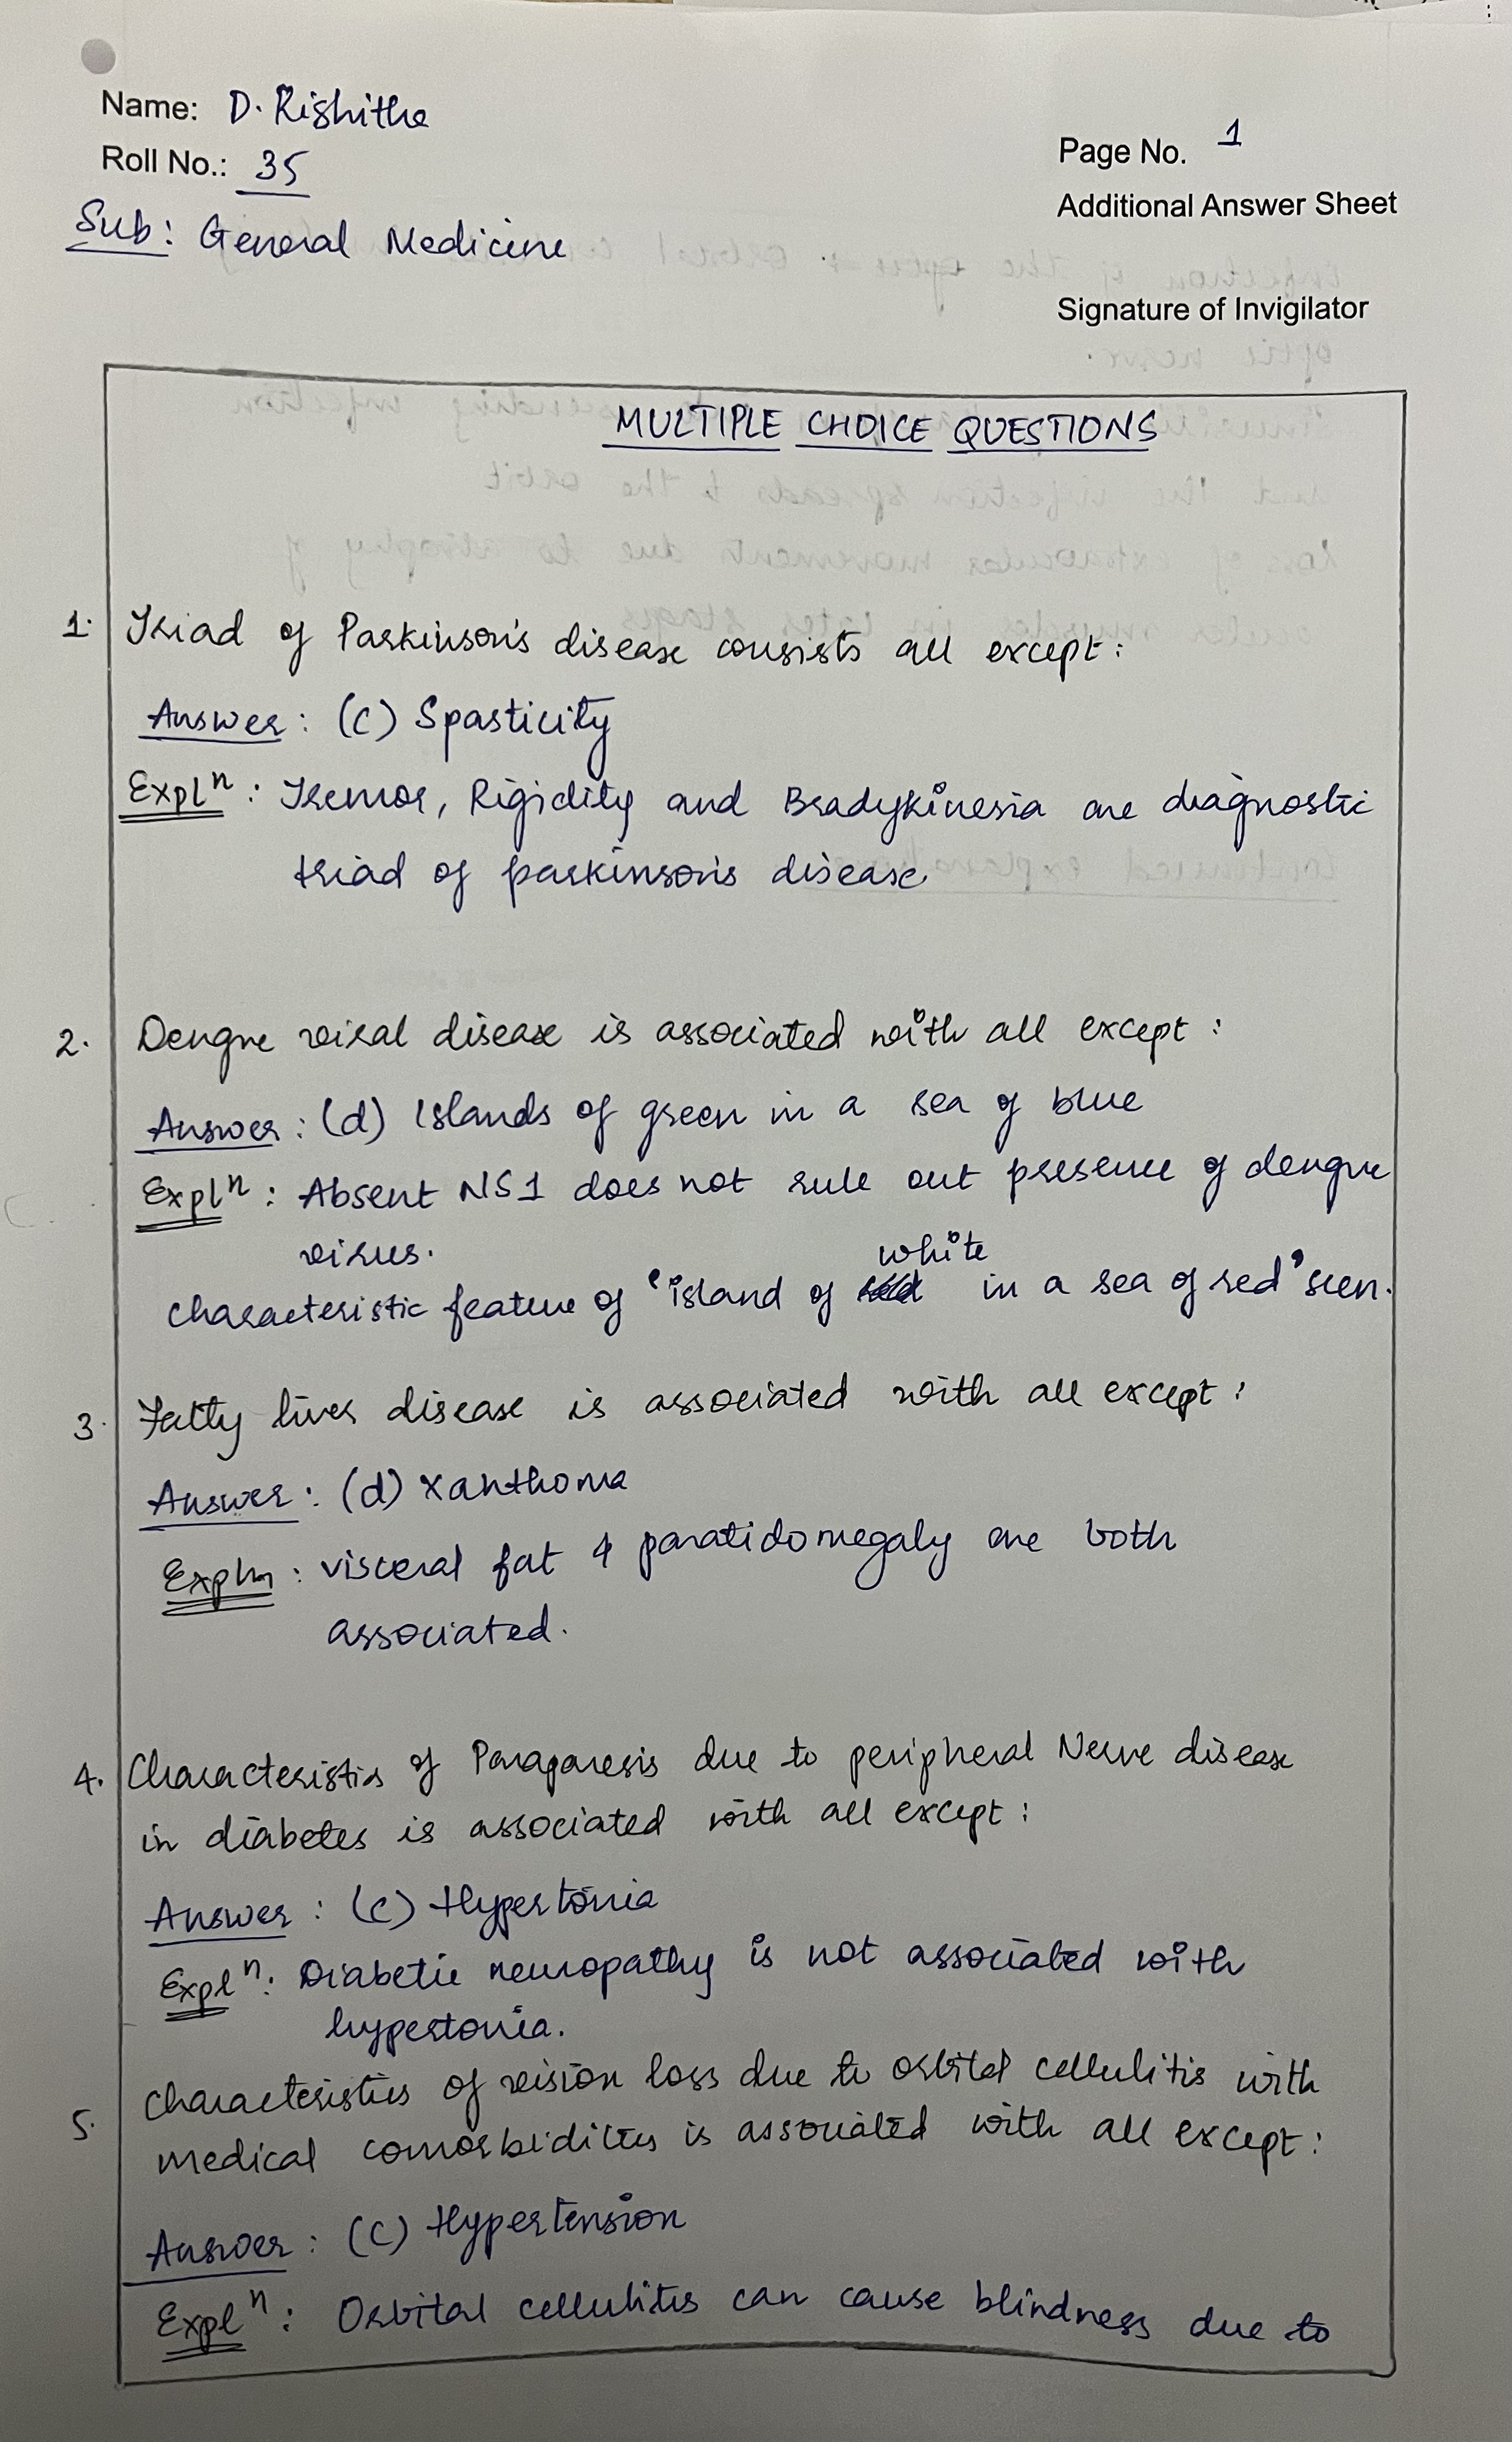 Name: D. Rishitha
Roll No.: 35
Page No. 1
Additional Answer Sheet
Sub: General Medicine
Signature of Invigilator
MULTIPLE CHOICE QUESTIONS
1. Triad of Parkinson's disease consists all except:
Answer: (c) Spasticity
Explⁿ: Tremor, Rigidity and Bradykinesia are diagnostic
triad of parkinson's disease
2. Dengue viral disease is associated with all except:
Answer: (d) Islands of green in a sea of blue
Explⁿ: Absent NS1 does not rule out presence of dengue
virus.
characteristic feature of 'island of white in a sea of red' seen.
3. Fatty liver disease is associated with all except:
Answer: (d) xanthoma
Expln: visceral fat & paratidomegaly are both
associated.
4. Characteristics of Paraparesis due to peripheral Nerve disease
in diabetes is associated with all except:
Answer: (c) Hypertonia
Explⁿ: Diabetic neuropathy is not associated with
hypertonia.
5. characteristics of vision loss due to orbital cellulitis with
medical comorbidities is associated with all except:
Answer: (c) Hypertension
Explⁿ: Orbital cellulitis can cause blindness due to